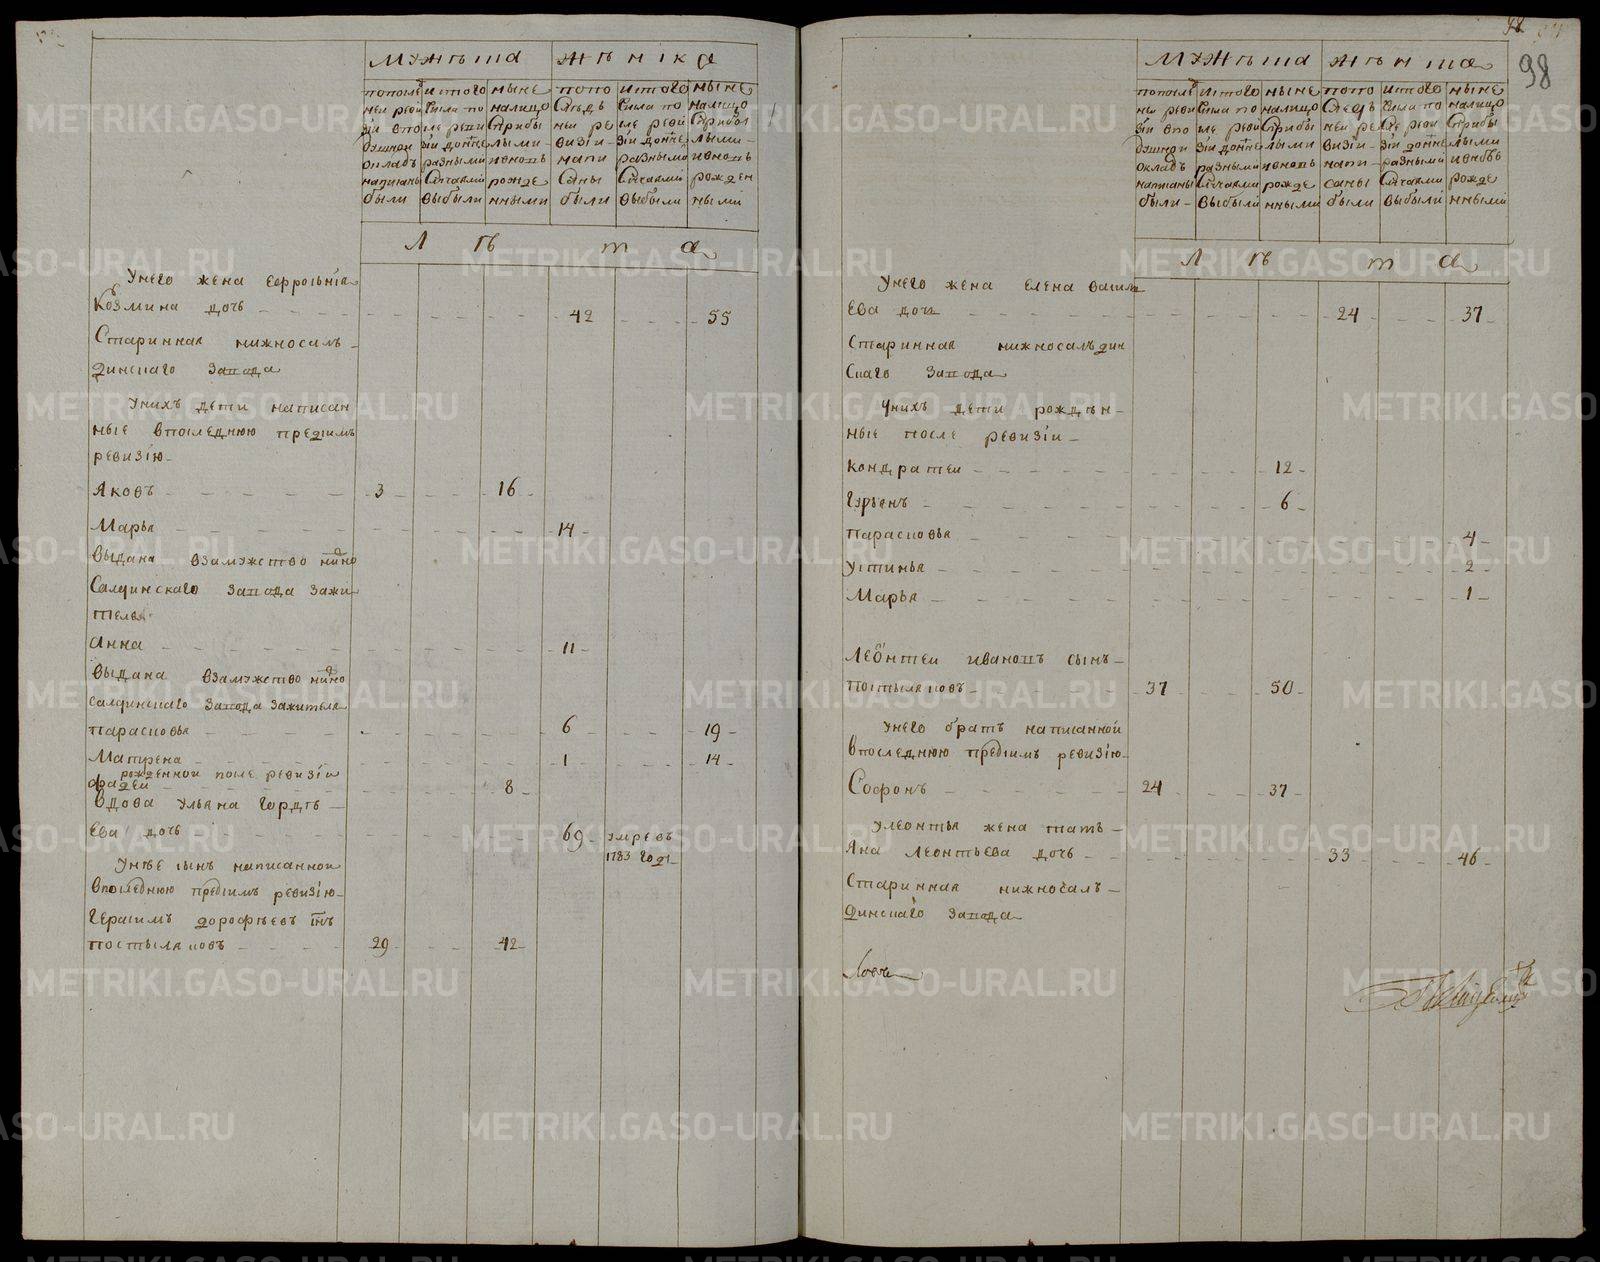 мужеска
женска
пополе
ней реви
зіи впо
душной
окладъ
написаны
были
изтого
Числа по
ле реви
зіи донне
разными
Случаями
выбыли
ныне
налицо
Сприбы
лыми
ивновь
рожде
нными
попо
Следъ
ней ре
визіи
напи
Саны
были
изтого
Числа по
ле реви
зіи донне
разными
Случаями
выбыли
ныне
налицо
Сприбы
лыми
ивновь
рожден
ными
Л ѣ т а
Унего жена Ефросинія
Козмина дочь 42 55
Старинная нижносаль
динскаго завода
Унихъ дети написан
ные впоследнюю предъимъ
ревизію
Яковъ 3 16
Марья 14
выдана взамужство нижно
Салдинскаго завода зажи
теля
Анна 11
выдана взамужство нижно
салдинскаго завода зажителя
парасковья 6 19
Матрена 1 14
рожденной после ревизіи
фадей 8
вдова Ульяна Гордѣ
Ева дочь 69 умре въ
1783 году
Унѣе сынъ написанной
впоследнюю предъимъ ревизію
герасимъ дорофѣевъ сынъ
постыляковъ 29 42
98
98
мужеска
женска
пополе
ней реви
зіи впо
душной
окладъ
написаны
были
изтого
Числа по
ле реви
зіи донне
разными
Случаями
выбыли
ныне
налицо
Сприбы
лыми
ивновь
рожде
нными
попо
Следъ
ней ре
визіи
напи
саны
были
изтого
Числа по
ле реви
зіи донне
разными
Случаями
выбыли
ныне
налицо
Сприбы
лыми
ивновь
рожде
нными
Л ѣ т а
Унего жена Елена василь
Ева дочь 24 37
Старинная нижносальдин
Скаго завода
Унихъ дети рожден
ные после ревизіи
кондратей 12
Гурьянъ 6
парасковья 4
Устинья 2
Марья 1
Леонтей ивановъ сынъ
постыляковъ 37 50
Унего братъ написанной
впоследнюю предъимъ ревизію
Софонъ 24 37
Улеонтья жена тать
Яна Леонтьева дочь 33 46
Старинная нижносаль
динскаго завода
METRIKI.GASO-URAL.RU